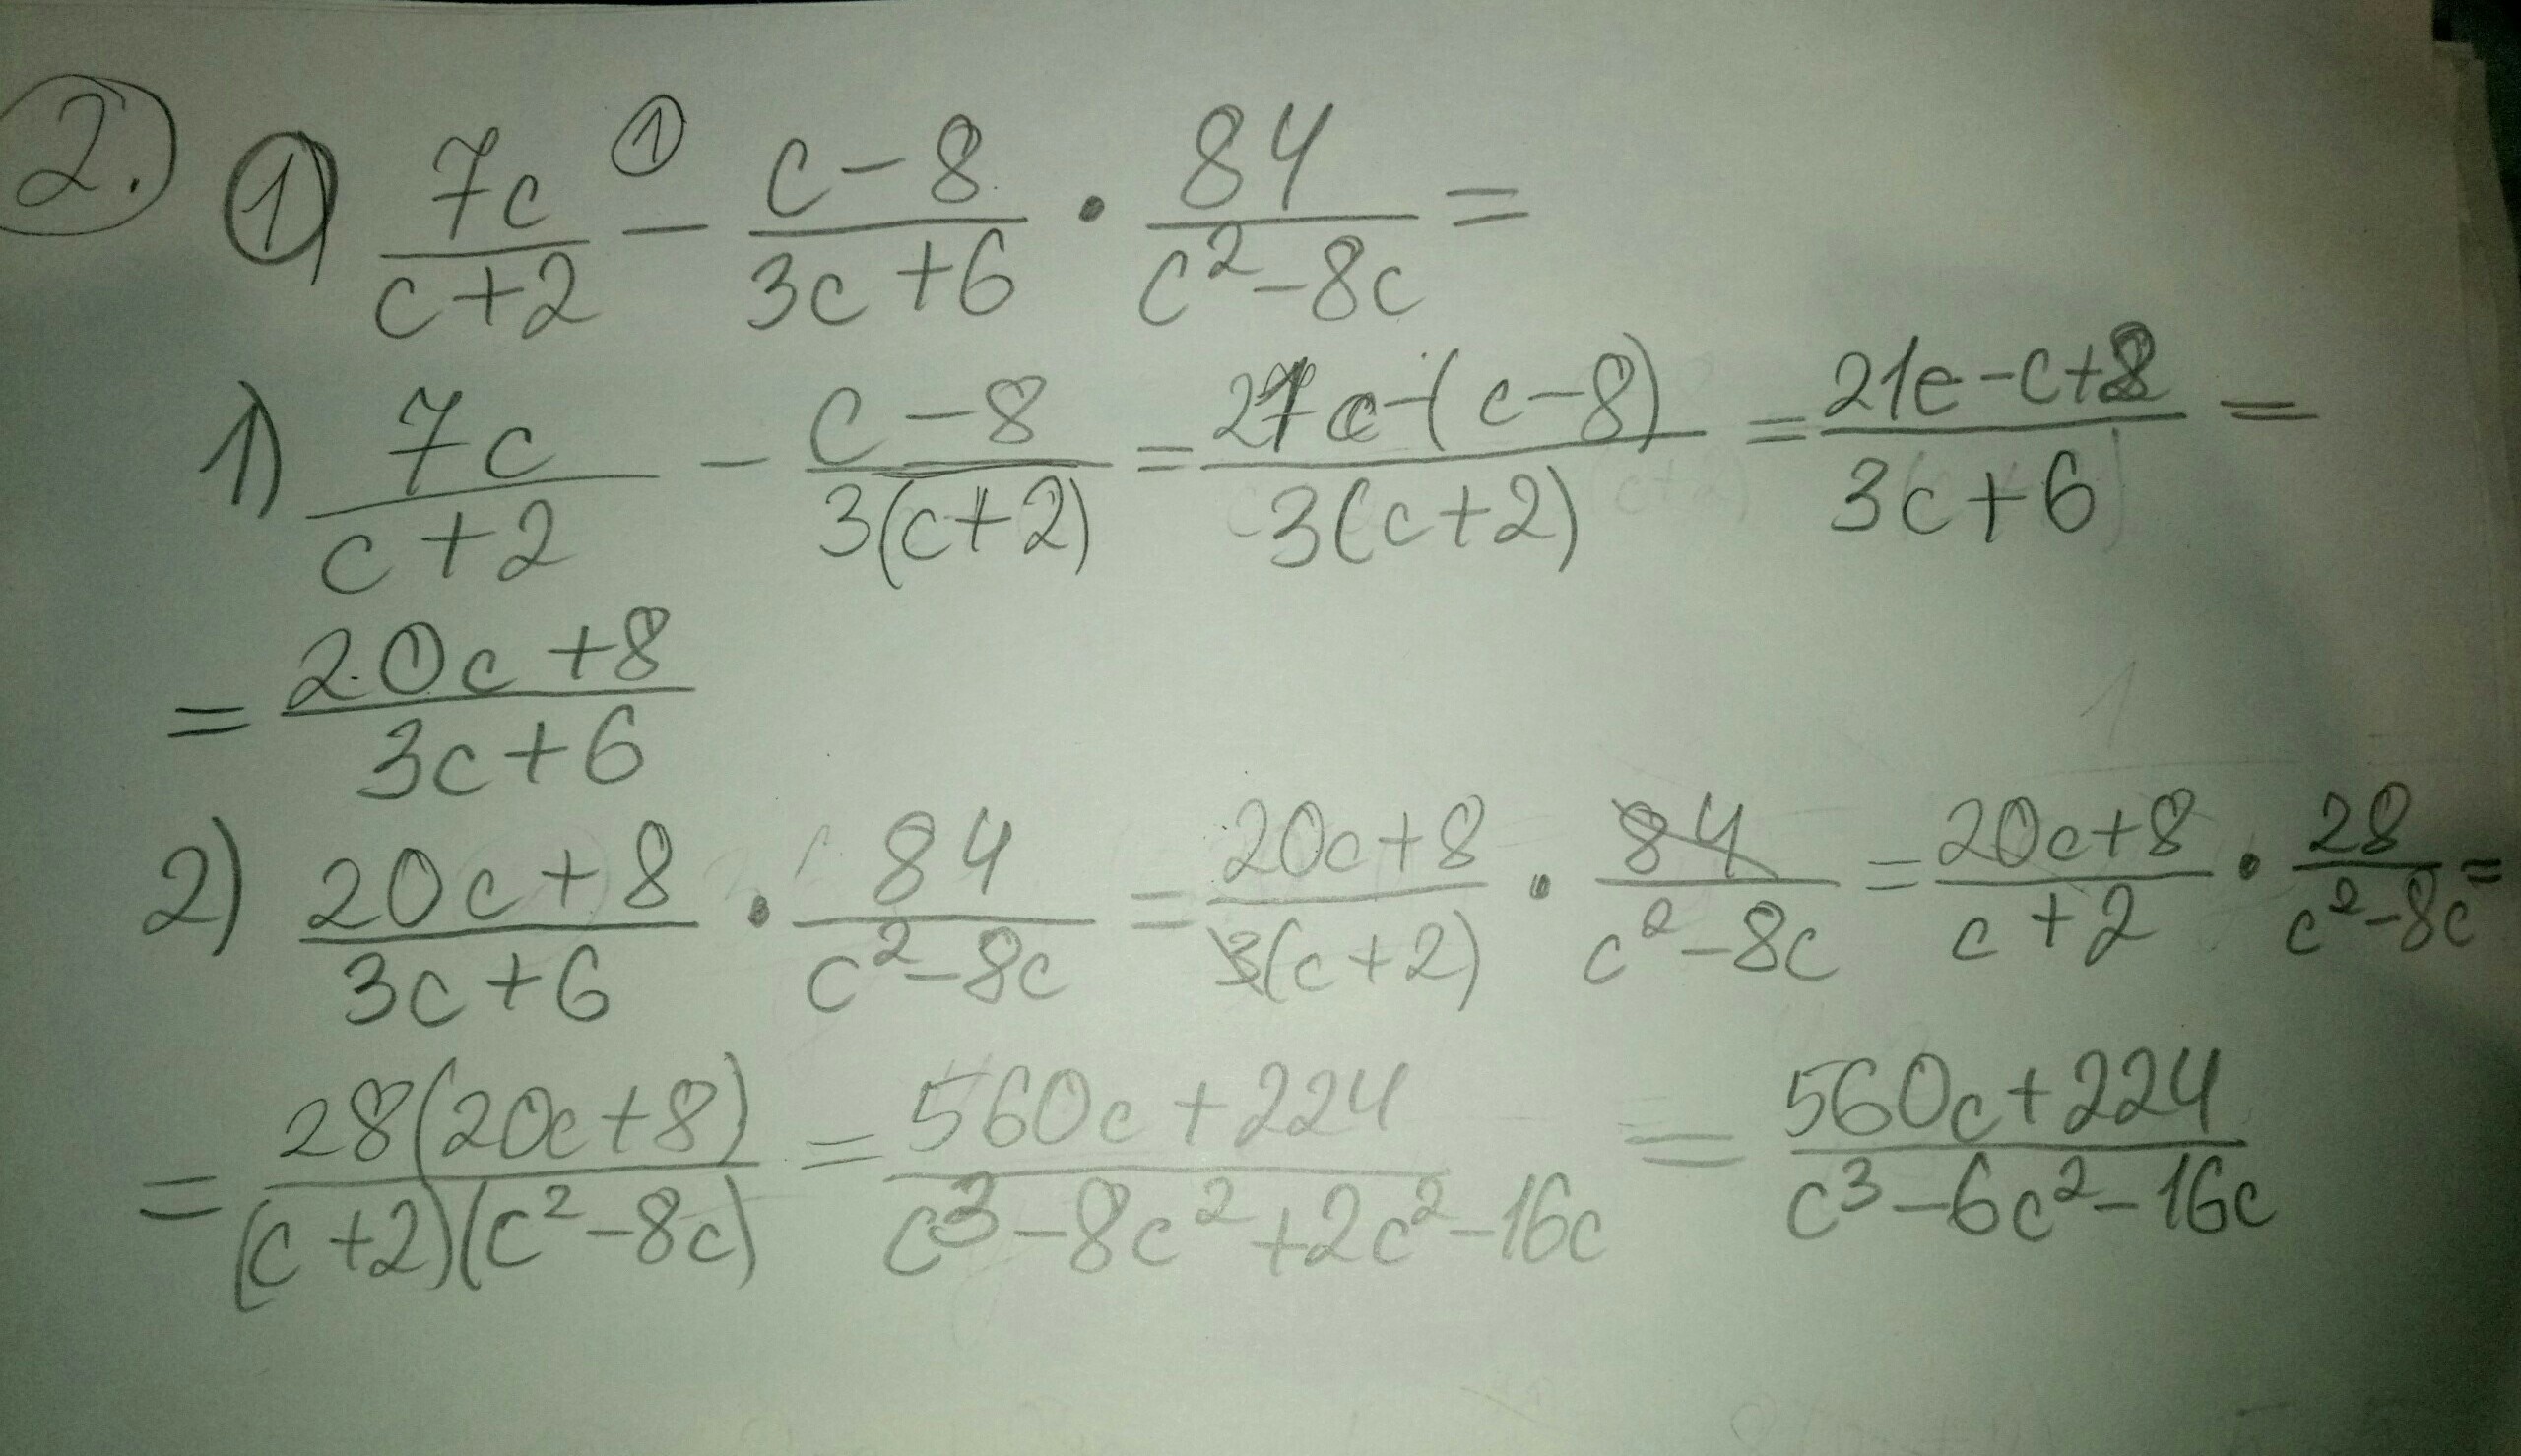 2. 1) 7c/(c+2) ① − (c−8)/(3c+6) · 84/(c²−8c) =
1) 7c/(c+2) − (c−8)/(3(c+2)) = (21c−(c−8))/(3(c+2)) = (21c−c+8)/(3c+6) =
= (20c+8)/(3c+6)
2) (20c+8)/(3c+6) · 84/(c²−8c) = (20c+8)/(3(c+2)) · 84/(c²−8c) = (20c+8)/(c+2) · 28/(c²−8c) =
= 28(20c+8)/((c+2)(c²−8c)) = (560c+224)/(c³−8c²+2c²−16c) = (560c+224)/(c³−6c²−16c)